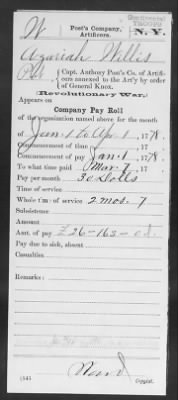 Continental Troops
W | Post's Company, Artificers. | N. Y.
Azariah Willis
Pvt, Capt. Anthony Post's Co. of Artificers annexed to the Art'y by order of General Knox.
(Revolutionary War.)
Appears on
Company Pay Roll
of the organization named above for the month
of Jan 1 to Apr 1, 1778.
Commencement of time , 17
Commencement of pay Jan 1, 1778.
To what time paid Mar 7, 17
Pay per month 30 Dolls
Time of service
Whole t'm of service 2 mos. 7
Subsistence
Amount
Amt. of pay £26-16s-0d.
Pay due to sick, absent
Casualties
Remarks:
(545)
Copyist.